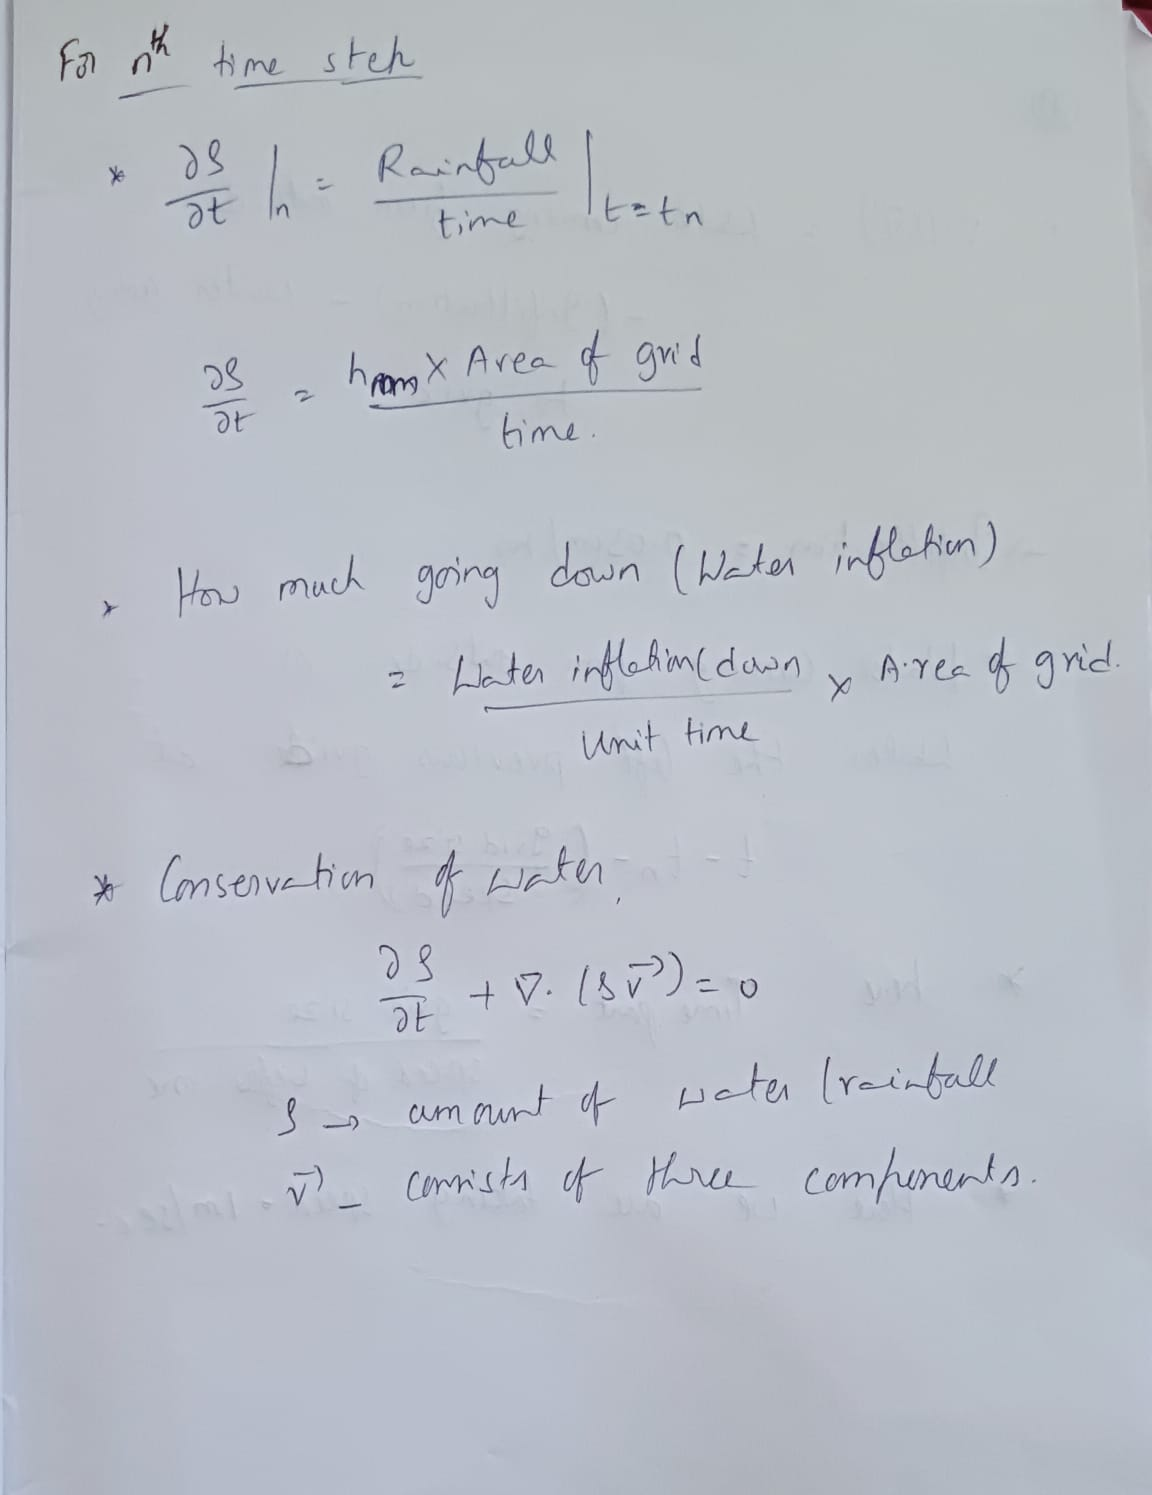 For nth time step
* ∂ρ/∂t |n = Rainfall/time | t=tn
∂ρ/∂t = hmm × Area of grid / time.
* How much going down (Water infletion)
= Water infletion(down / Unit time × Area of grid.
* Conservation of water,
∂ρ/∂t + ∇. (ρv⃗) = 0
ρ → amount of water (rainfall
v⃗ – consists of three components.